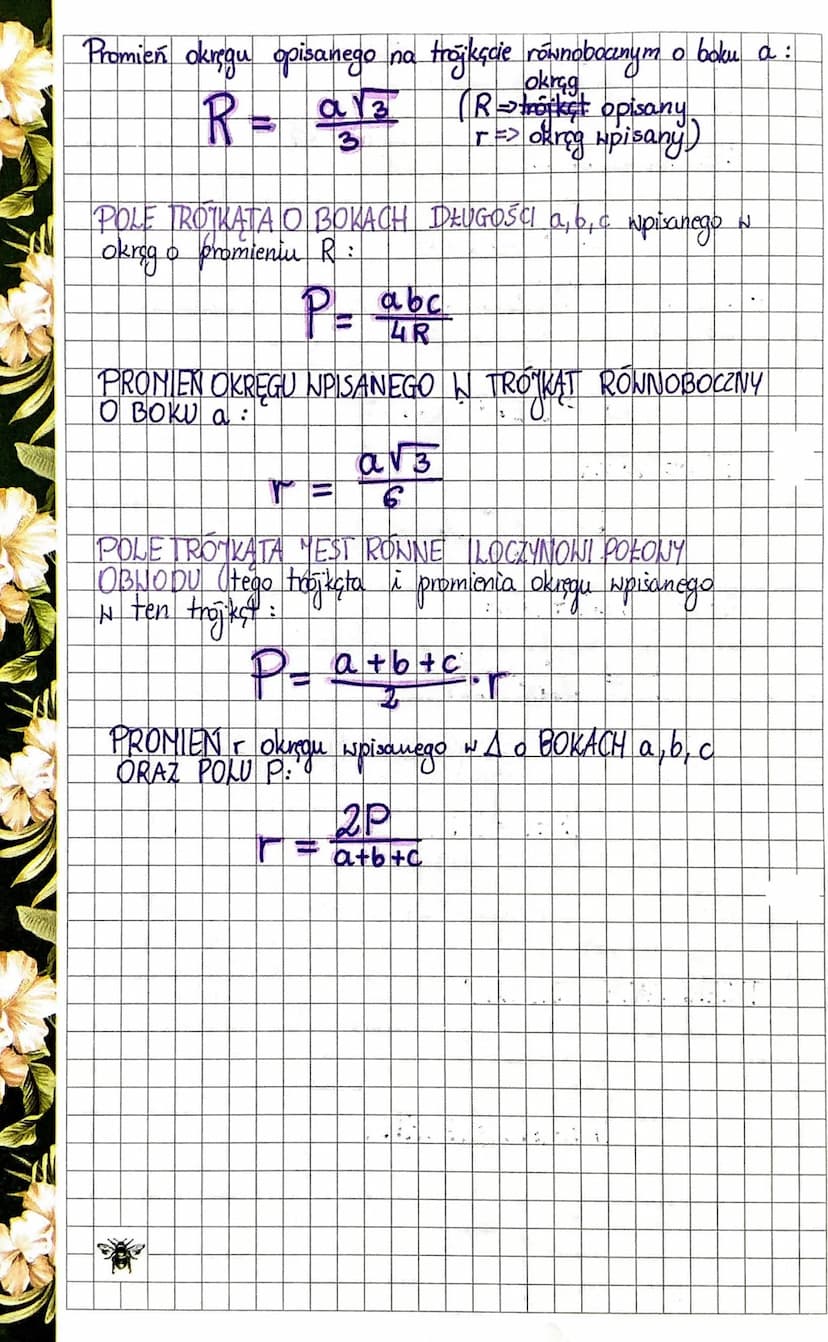 Promień okręgu opisanego na trójkącie równobocznym o boku a:
okrąg
R = a√3/3 (R => trójkąt opisany
r => okrąg wpisany)
POLE TRÓJKĄTA O BOKACH DŁUGOŚCI a, b, c wpisanego w
okrąg o promieniu R:
P = abc/4R
PROMIEŃ OKRĘGU WPISANEGO W TRÓJKĄT RÓWNOBOCZNY
O BOKU a:
r = a√3/6
POLE TRÓJKĄTA JEST RÓWNE ILOCZYNOWI POŁOWY
OBWODU (tego trójkąta i promienia okręgu wpisanego
w ten trójkąt:
P = a+b+c/2 · r
PROMIEŃ r okręgu wpisanego w Δ o BOKACH a, b, c
ORAZ POLU P:
r = 2P/a+b+c